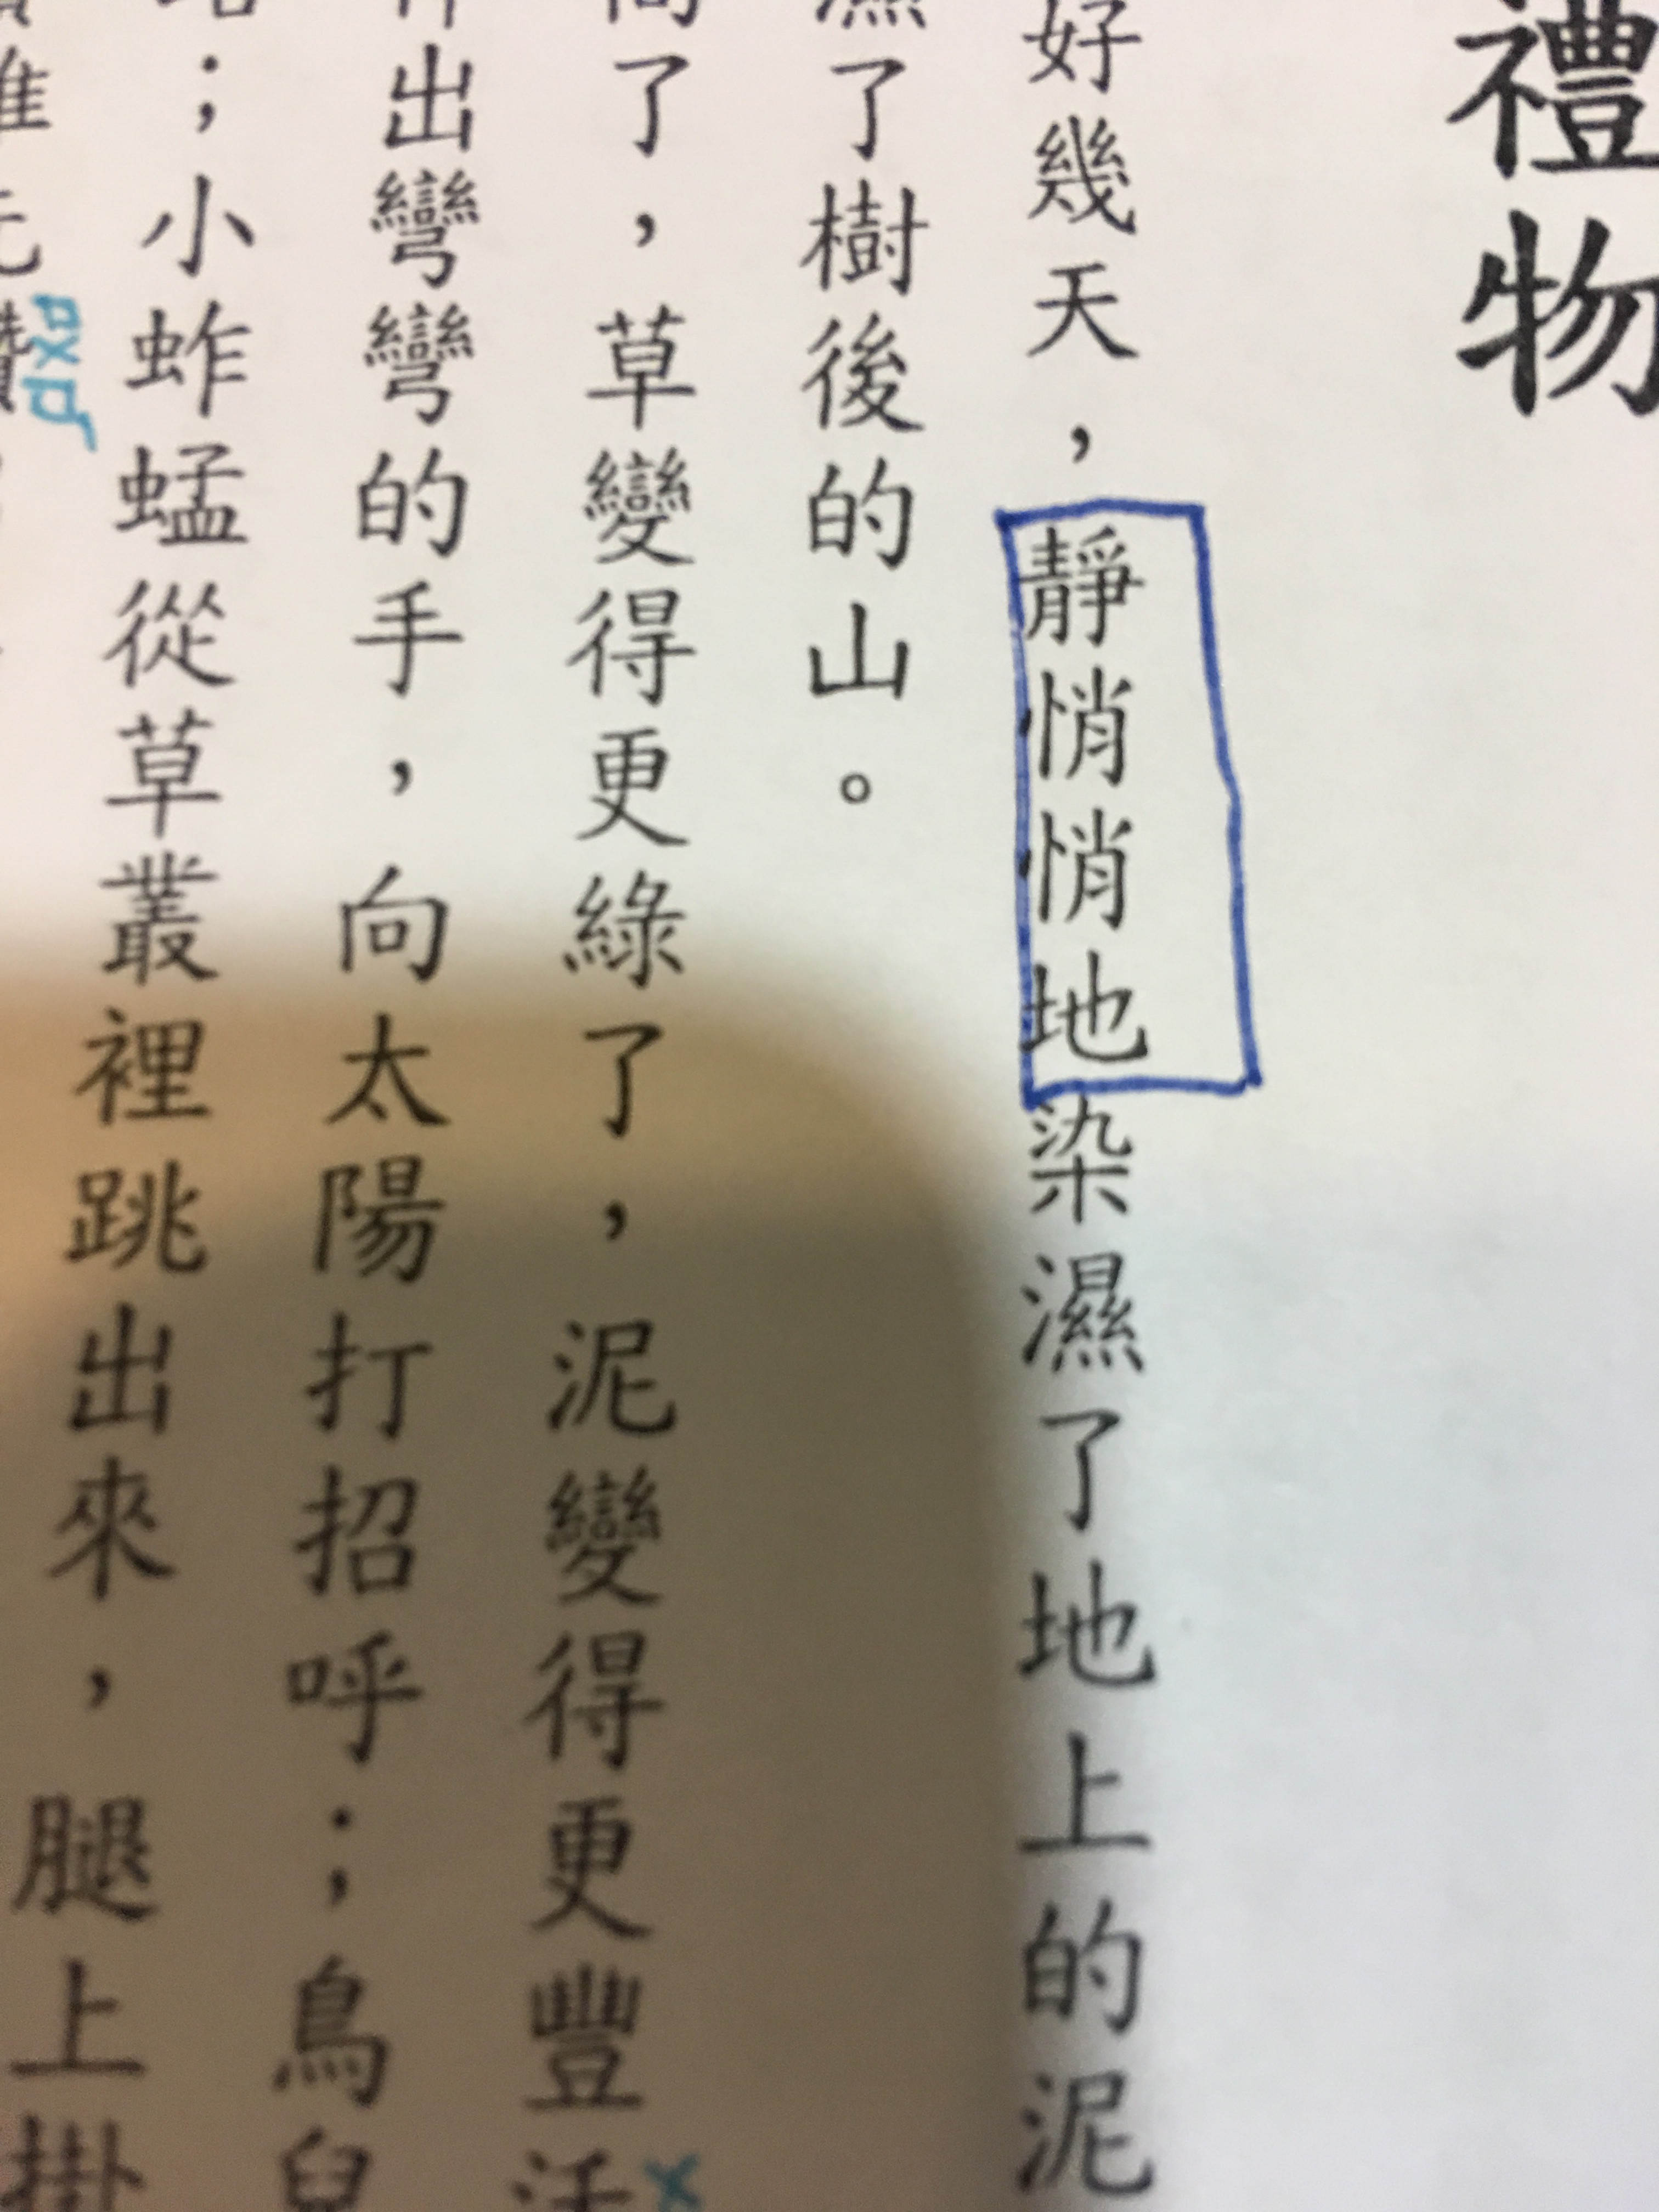 禮物
好幾天，靜悄悄地染濕了地上的泥
濕了樹後的山。
了，草變得更綠了，泥變得更豐
出彎彎的手，向太陽打招呼；鳥兒
；小蚱蜢從草叢裡跳出來，腿上掛